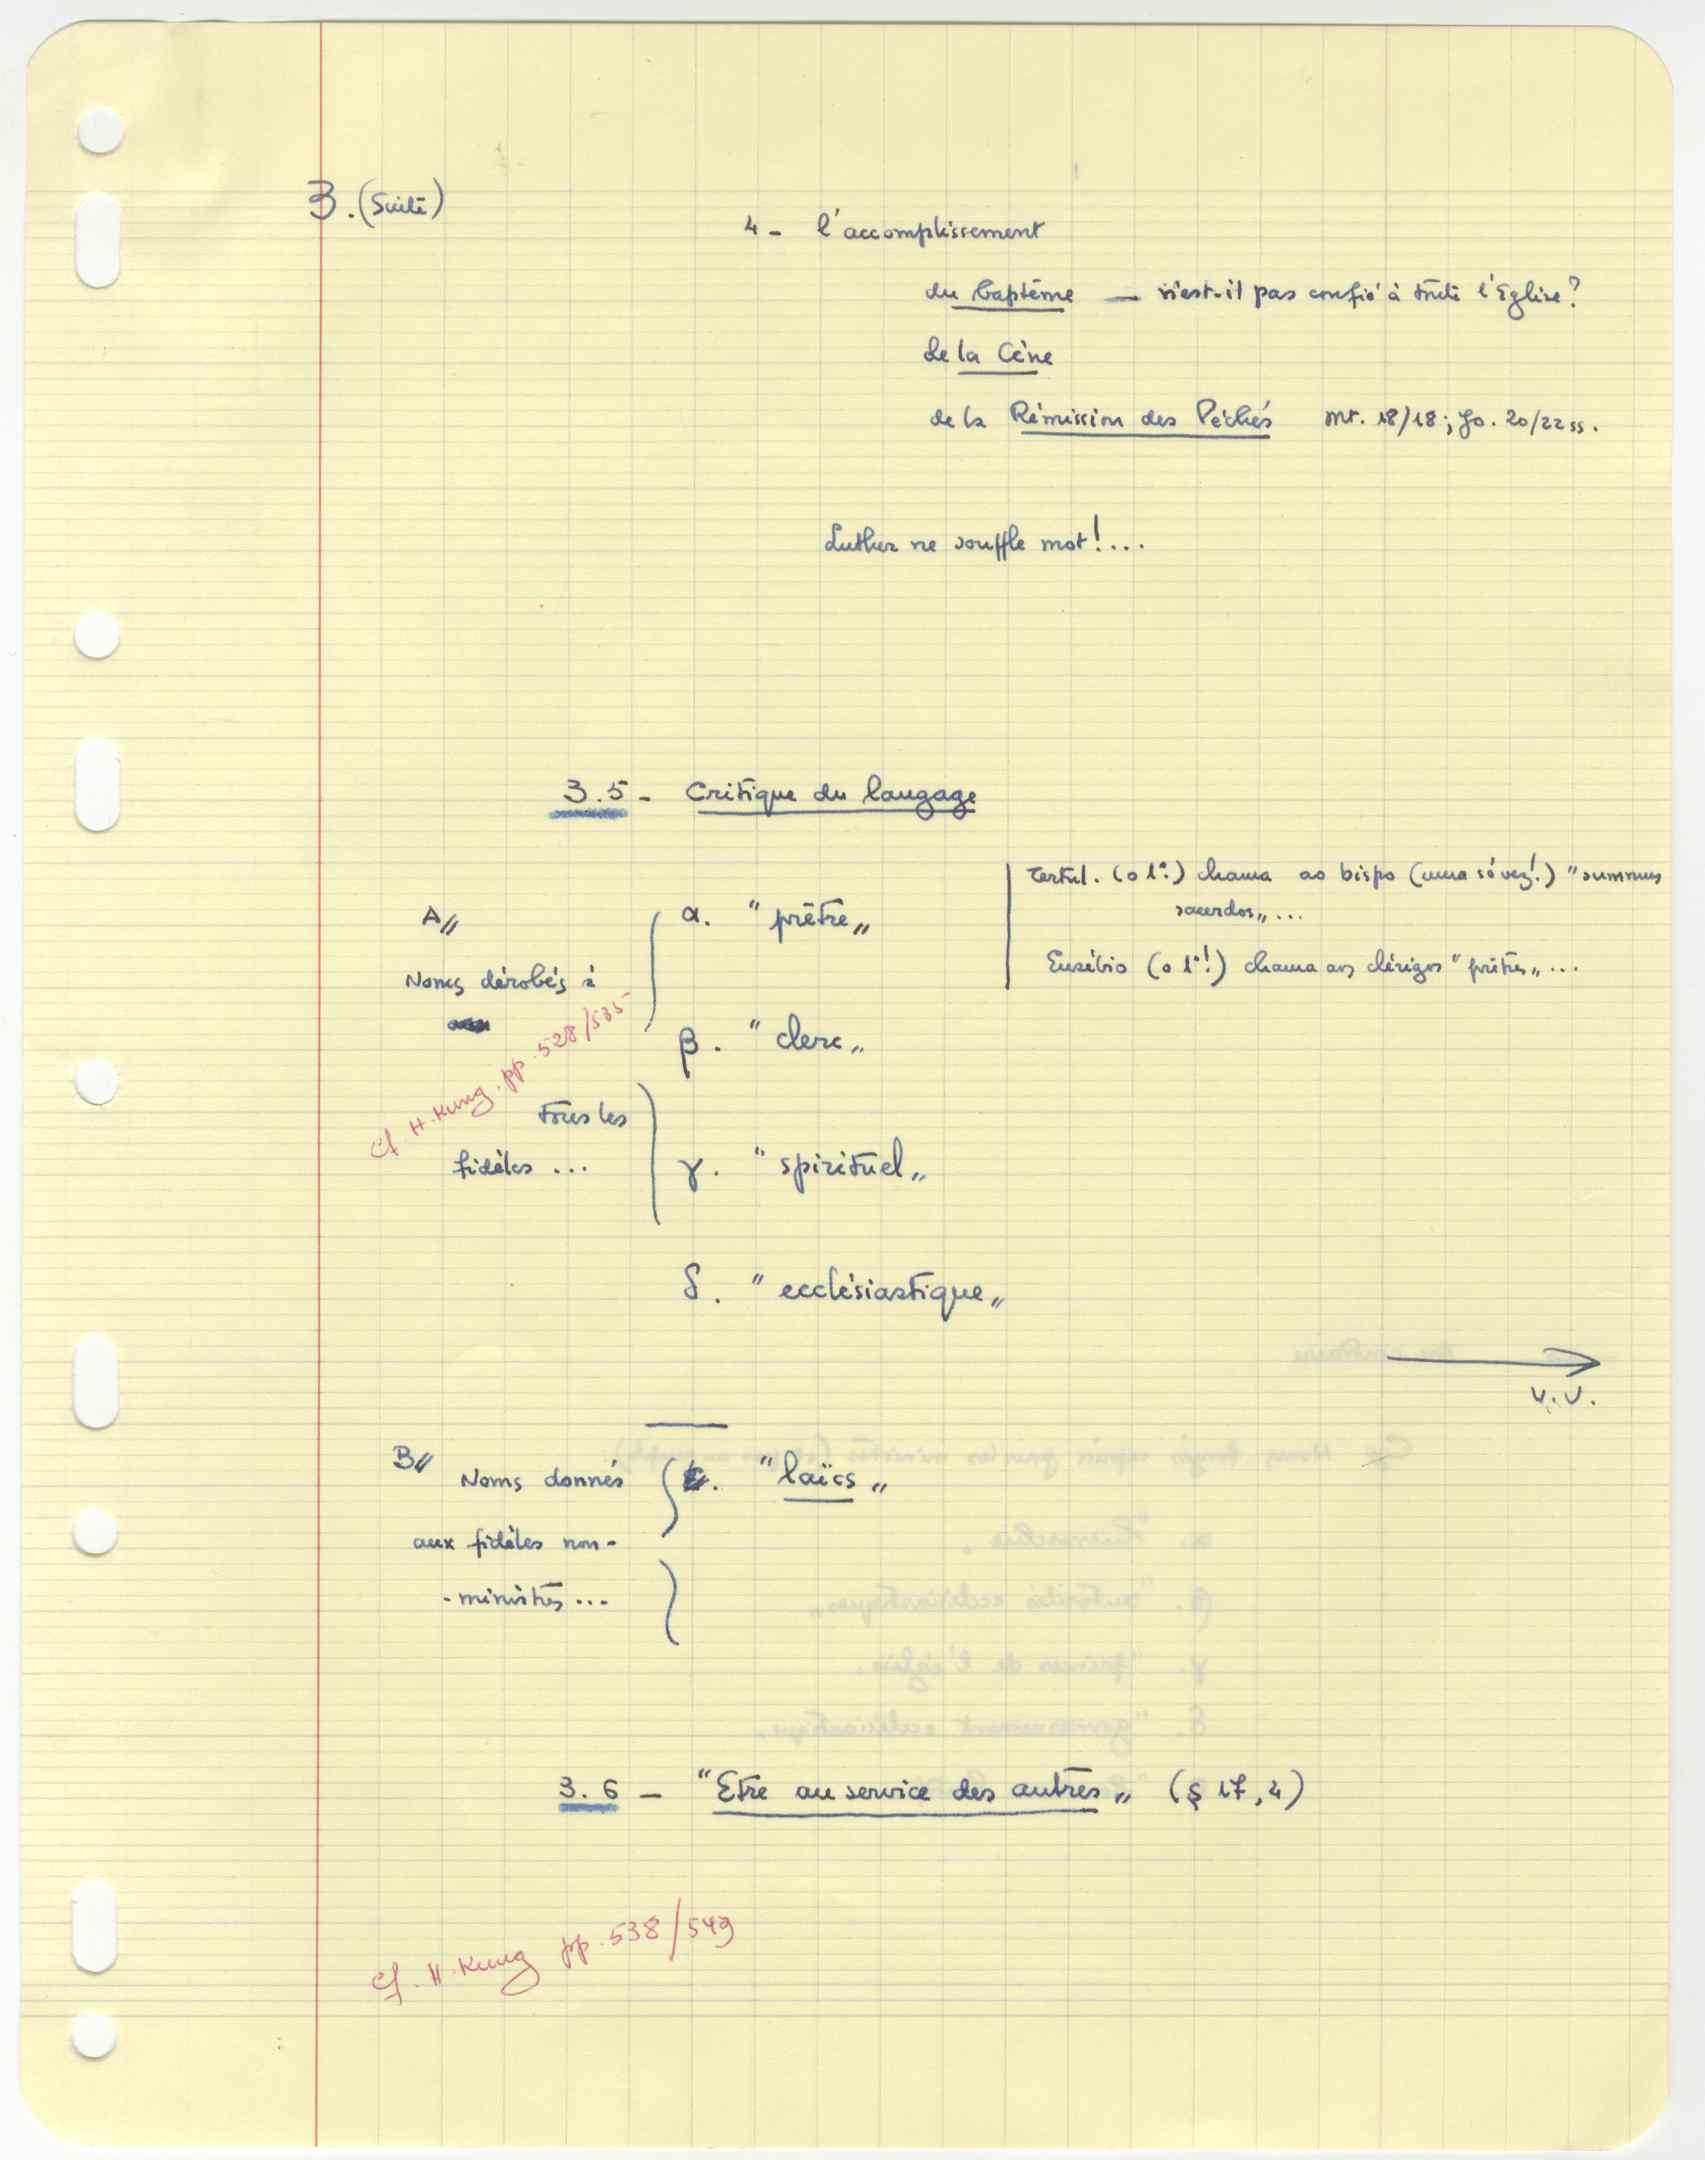 3. (Suite)
4 - l'accomplissement
du baptême — n'est-il pas confié à toute l'Eglise?
de la Cène
de la Rémission des Péchés Mt. 18/18; Jo. 20/22 ss.
Luther ne souffle mot!...
3.5 - Critique du langage
Tertul. (o 1º.) chama ao bispo (uma só vez!) "summus
sacerdos„ ...
Eusébio (o 1º!) chama aos clérigos "prêtres„ ...
A//
Noms dérobés à
tous les
fidèles ...
Cf. H. Kung. pp. 528/535
α. "prêtre„
β. "clerc„
γ. "spirituel„
δ. "ecclésiastique„
V.V.
B//
Noms donnés
aux fidèles non-
-ministres ...
"laïcs„
3.6 - "Etre au service des autres„ (§ 17, 4)
Cf. H. Kung pp. 538/549